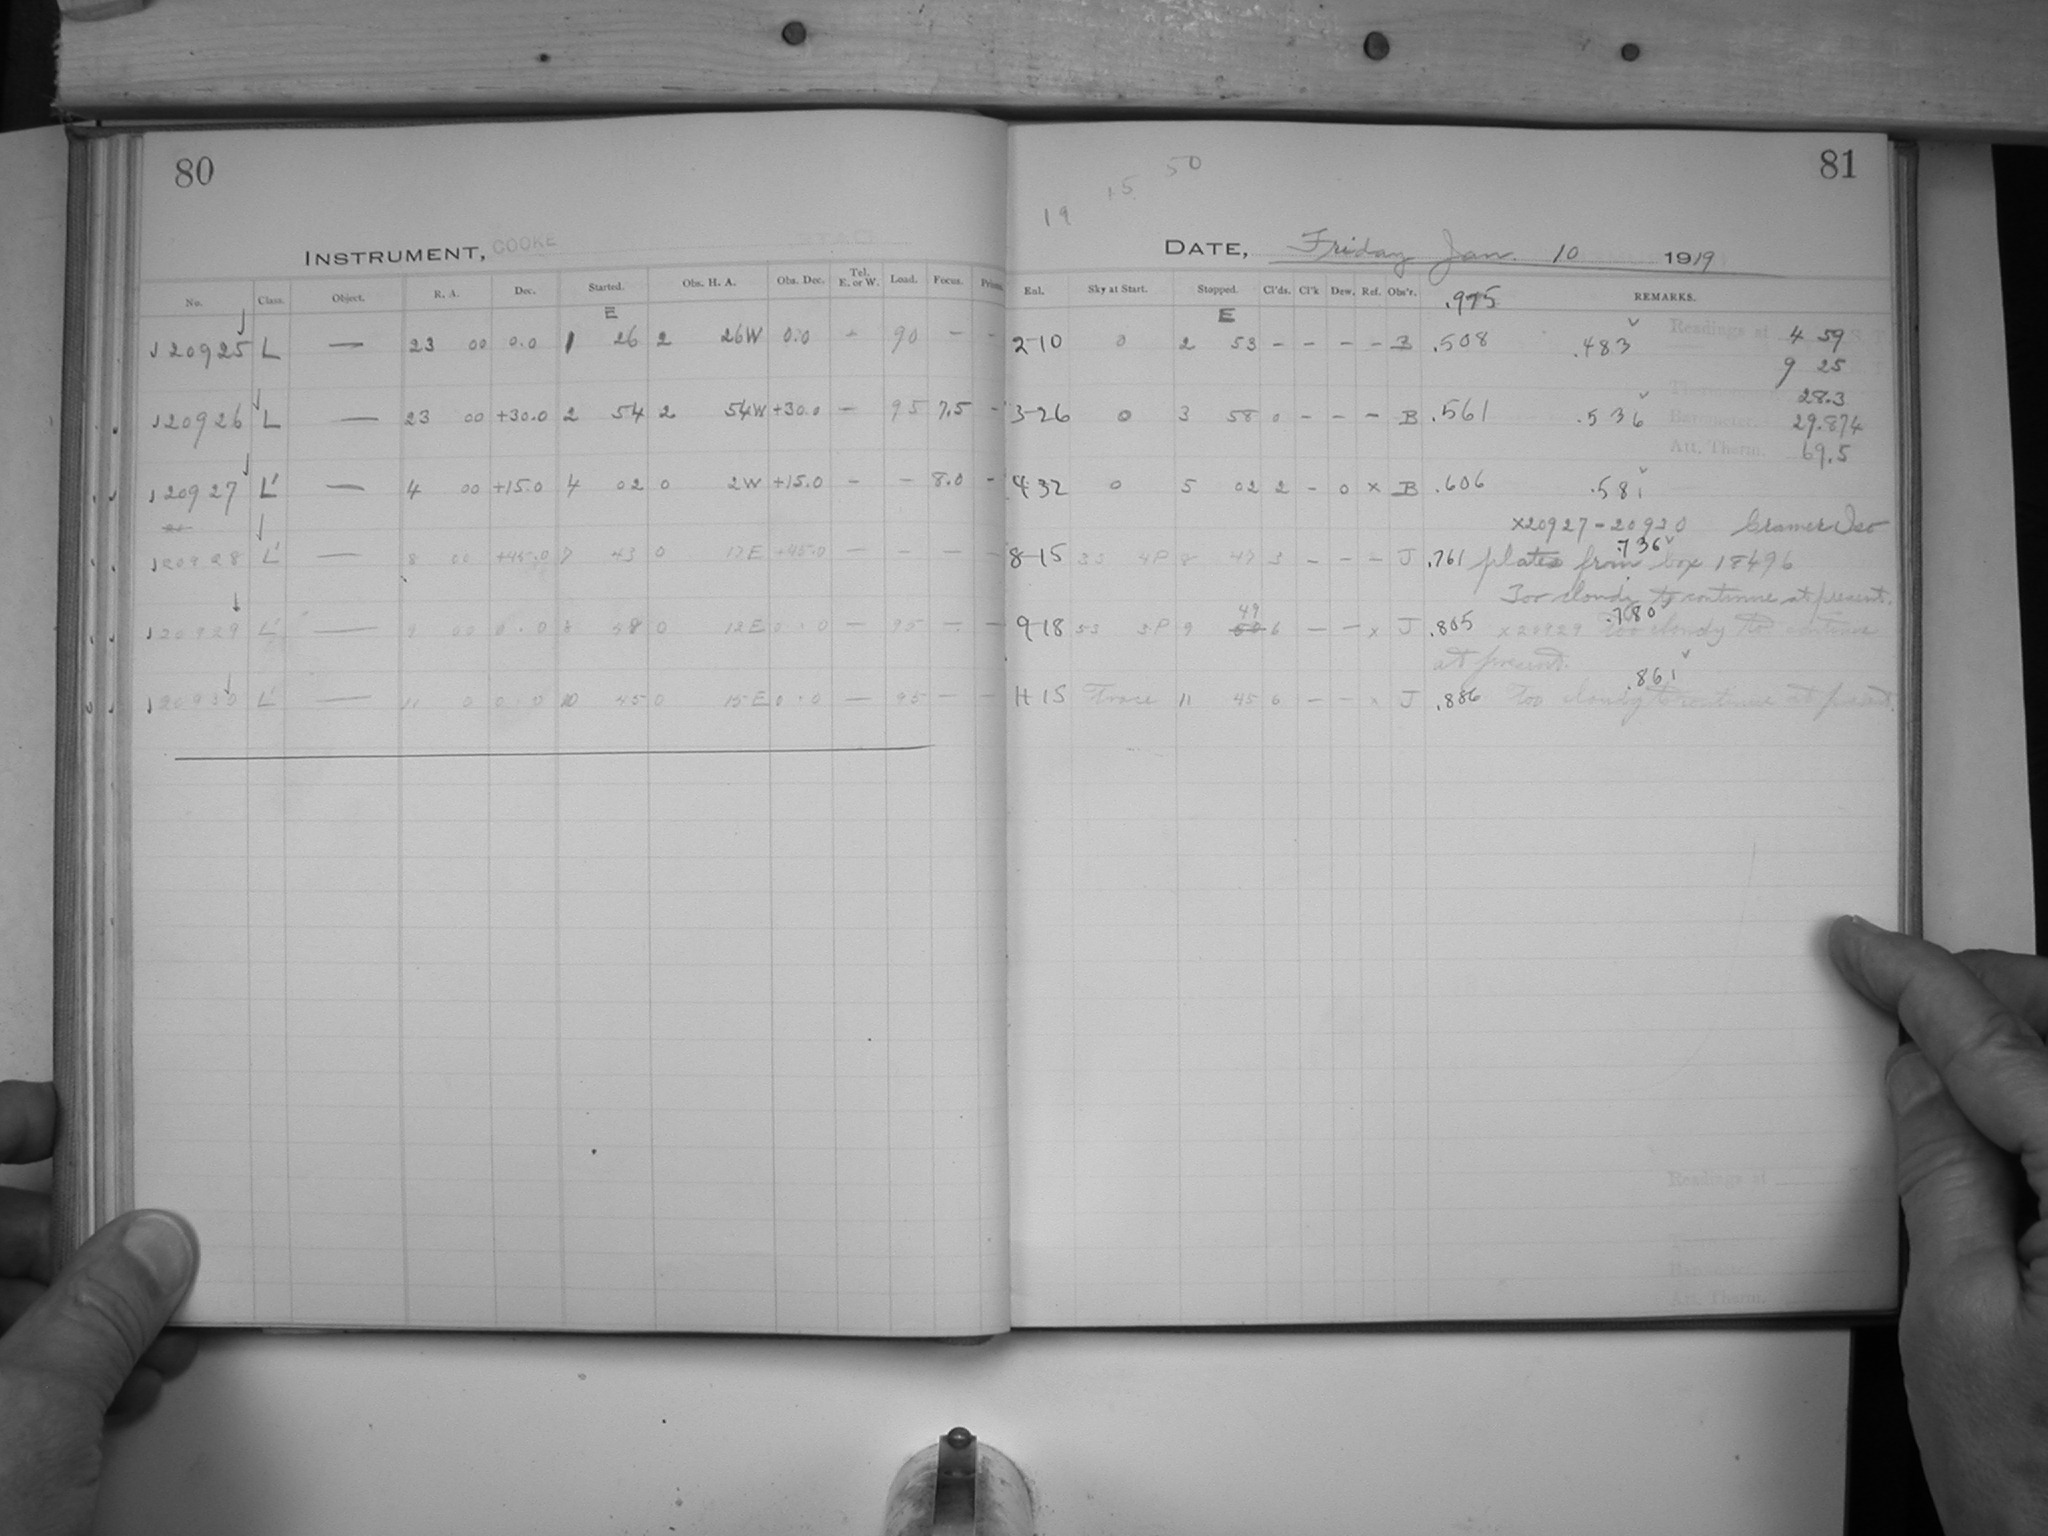 80
INSTRUMENT, COOKE
No. Class. Object. R. A. Dec. Started. Obs. H. A. Obs. Dec. Tel. E. or W. Load. Focus.
E
120925 L — 23 00 0.0 1 26 2 26W 0.0 - 90 - -
120926 L — 23 00 +30.0 2 54 2 54W +30.0 - 95 7.5 -
120927 L' — 4 00 +15.0 4 02 0 2W +15.0 - - 8.0 -
120928 L' — 8 00 +45.0 7 43 0 17E +45.0 - - - -
120929 L' — 9 00 0.0 8 48 0 12E 0.0 - 95 - -
120930 L' — 11 0 0.0 10 45 0 15E 0.0 - 95 - -
81
50
15
19
DATE, Friday Jan. 10 1919
Enl. Sky at Start. Stopped. Cl'ds. Cl'k Dew. Ref. Obs'r. .975 REMARKS.
E
2-10 0 2 53 - - - - B .508 .483 Readings at 4 59
9 25
28.3
3-26 0 3 58 0 - - - B .561 .536 Barometer, 29.874
Att. Therm. 69.5
4-32 0 5 02 2 - 0 x B .606 .581
x20927-20930 Cramer Iso
8-15 33 4P 8 47 3 - - - J .761 plates from box 18496
.736
Too cloudy to continue at present.
49
9-18 33 3P 9 50 6 - - x J .805 x20929 Too cloudy to continue
.780
at present.
.861
11-15 Trace 11 45 6 - - x J .886 Too cloudy to continue at present.
Readings at
Barometer,
Att. Therm.